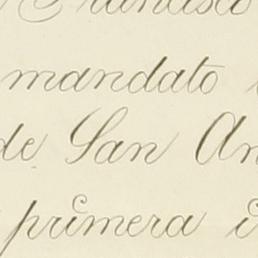 Francisco
mandato
de San An
primera i